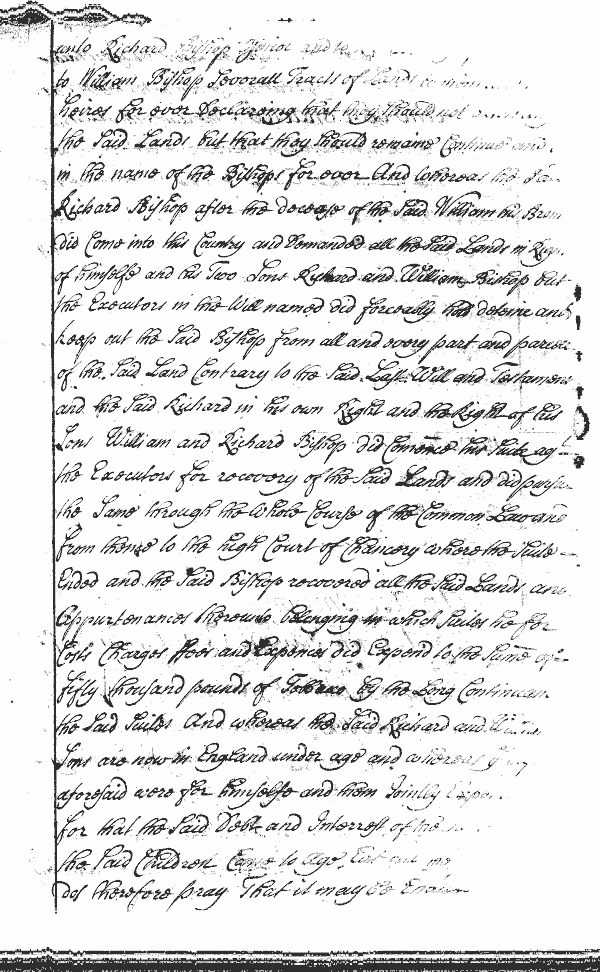 unto Richard Bishop Senior and
to William Bishop Severall Tracts of Lands
heires for ever Declareing that they should not
the Said Lands but that they should remaine Continue and
in the name of the Bishops for ever And whereas the
Richard Bishop after the decease of the Said William his
did Come into this Country and Demanded all the Said Lands in
of himselfe and his Two Sons Richard and William Bishop but
the Executors in the Will named did forceably had deteine and
keep out the Said Bishop from all and every part and parcell
of the Said Land Contrary to the Said Last Will and Testament
and the Said Richard in his own Right and the Right of his
Sons William and Richard Bishop did Comence his Suite ag
the Executors for recovery of the Said Lands and did pursue
the Same through the Whole Course of the Common Law and
from thence to the high Court of Chancery where the Suite
Ended and the Said Bishop recovered all the Said Lands and
Appurtenances thereunto belonging in which Suites he for
Costs Charges ffees and Expences did Expend to the Sume of
fifty thousand pounds of Tobacco by the Long Continuan
the Said Suites And whereas the Said Richard and
Sons are now in England under age and whereas
aforesaid were for himselfe and them Joyntly
for that the Said Debt and Interrest of the
the Said Children Came to Age
doe therefore pray That it may be